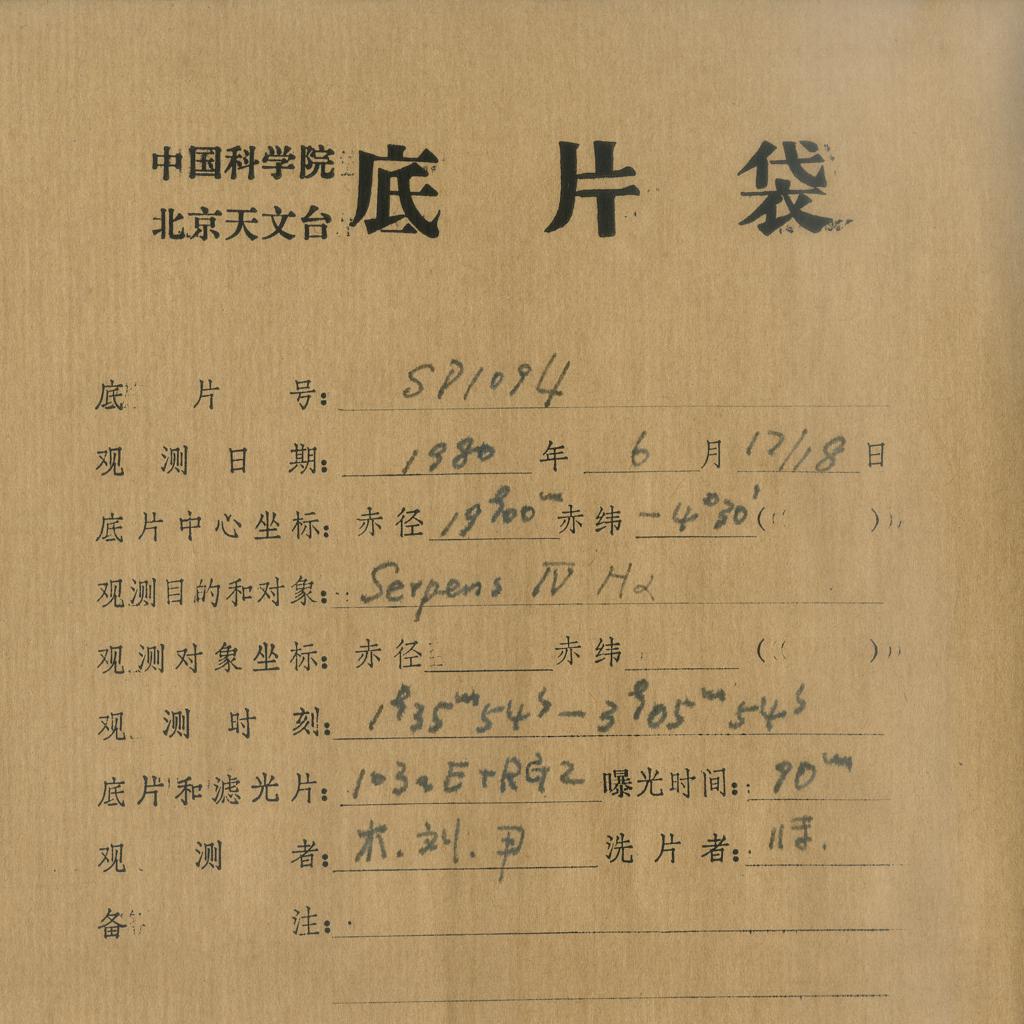 中国科学院
北京天文台
底片袋
底片号: SP1094
观测日期: 1980 年 6 月 17/18 日
底片中心坐标: 赤径 19h00m 赤纬 -4°30′ ( )
观测目的和对象: Serpens IV Hα
观测对象坐标: 赤径 赤纬 ( )
观测时刻: 1h35m54s - 3h05m54s
底片和滤光片: 103aE+RG2 曝光时间: 90m
观测者: 木.刘.尹 洗片者:
备注: